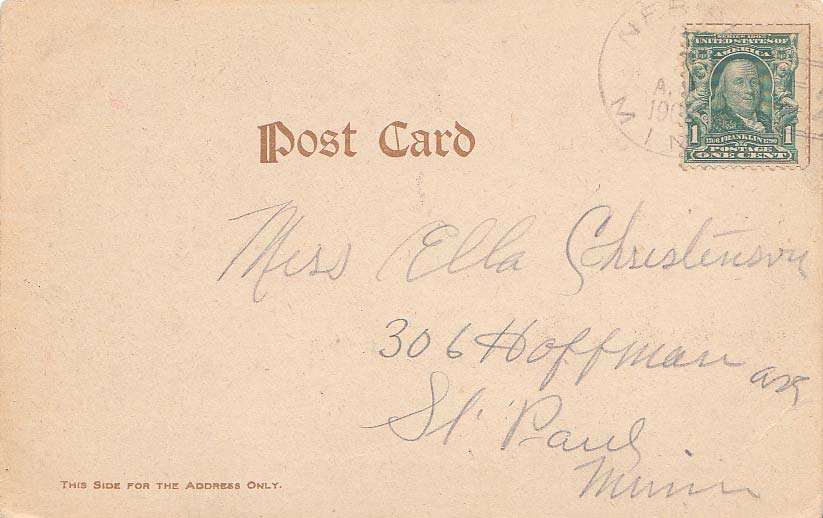 MIN
A.
190
SERIES 1902
UNITED STATES OF
AMERICA
1 1
1706 FRANKLIN 1790
POSTAGE
ONE CENT
Post Card
Miss Ella Christenson
306 Hoffman ave
St. Paul
Minn
THIS SIDE FOR THE ADDRESS ONLY.